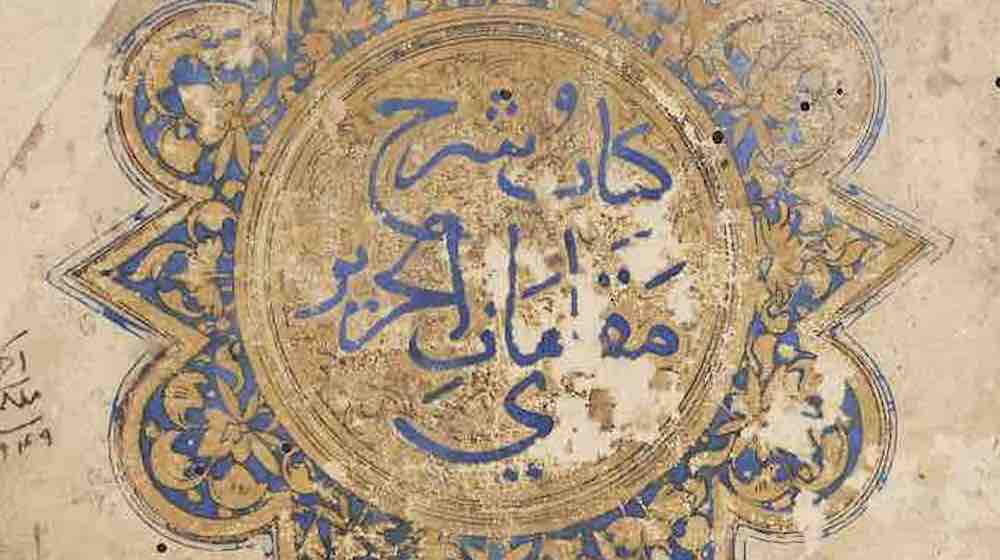 كتاب شرح
مقامات الحرير
ي